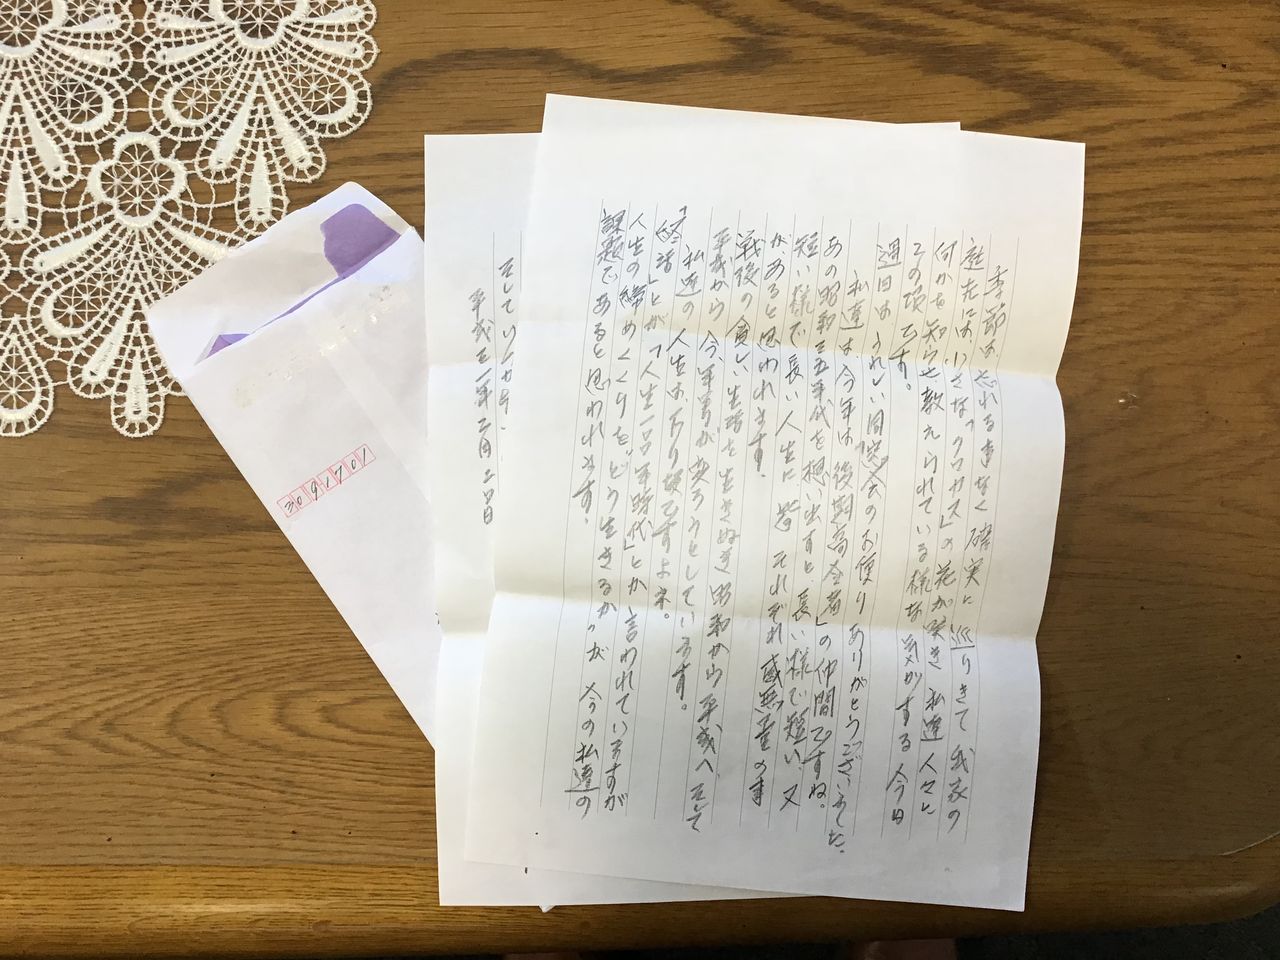 季節は、忘れる事なく確実に巡りきて我家の
庭先には、小さな「クロカス」の花が咲き私達人々に
何かを知らせ教えられている様な気がする今日
この頃です。
過日は、うれしい同窓会のお便りありがとうございました。
私達は今年は「後期高令者」の仲間ですね。
あの昭和三五年代を想い出すと、長い様で短い、又
短い様で長い人生に皆それぞれ感無量の事
があると思われます。
戦後の貧しい生活を生きぬき昭和から平成へ、そして
平成から今、年号が変ろうとしています。
私達の人生は、下り坂ですよネ。
「終活」とか「人生一〇〇年時代」とか言われていますが
人生の締めくくりを、どう生きるか、が今の私達の
課題であると思われます。
平成三一年三月二日
3091701